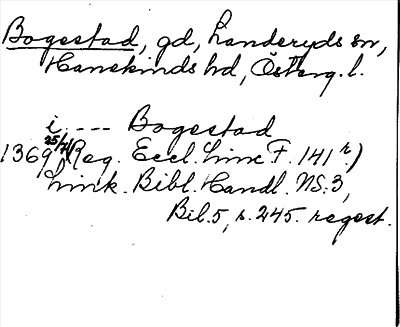 Bogestad, gd, Landeryds sn,
Hanekinds hd, Österg. l.
i --- Bogestad
1369 25/7 (Reg. Eccl. Linc F. 141 r.)
Link. Bibl. Handl. NS:3,
Bil. 5, s. 245. regest.